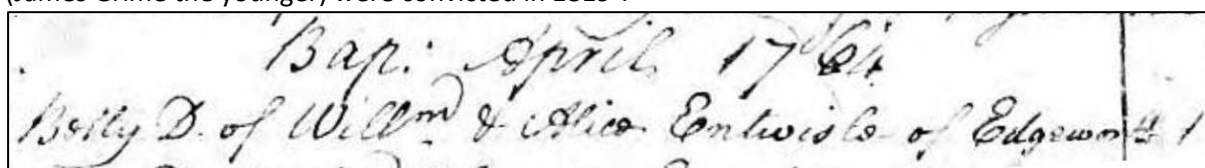 (James Grime the younger) were convicted in 1819".
Bap: April 1764
Betty D. of Will.m & Alice Entwisle of Edgeworth 1